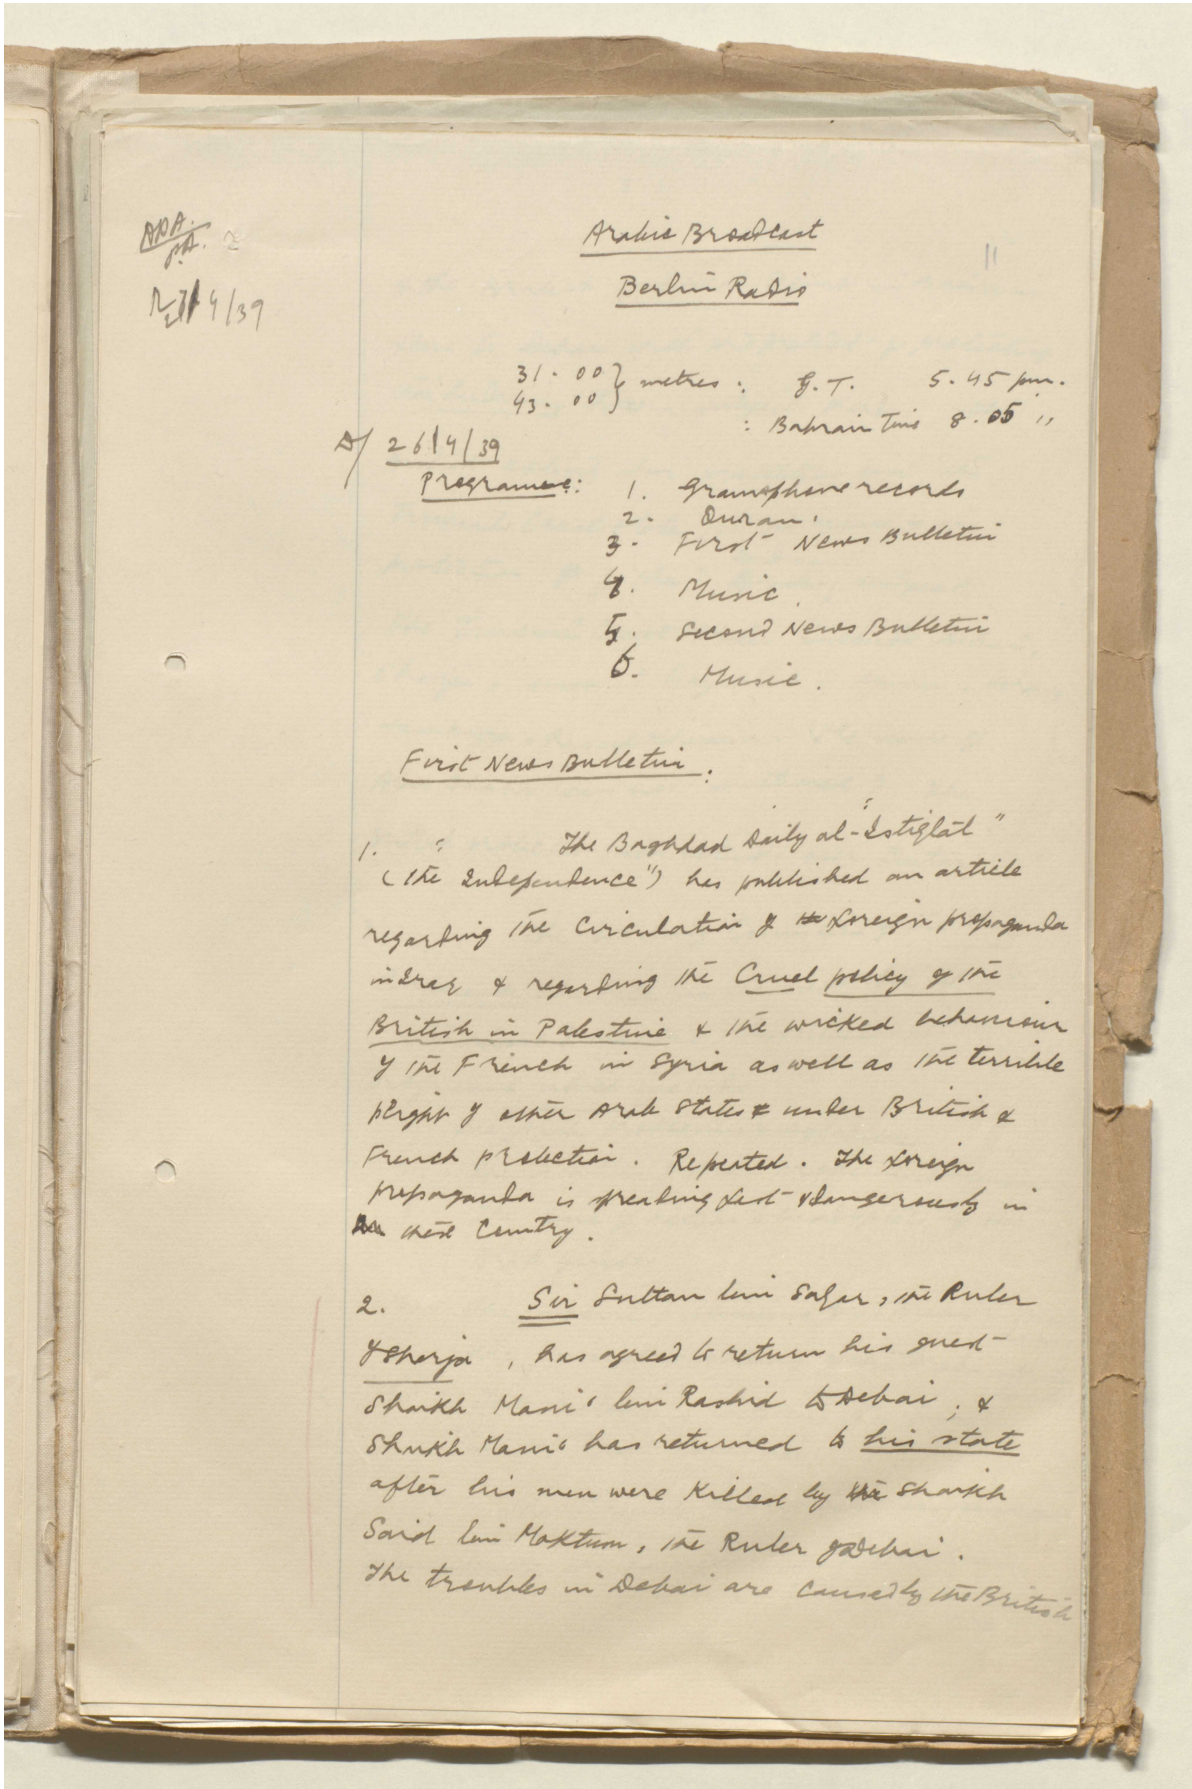 ADA.
P.A.
27/4/39
11
Arabic Broadcast
Berlin Radio
31.00 } metres : G.T. 5.45 pm.
43.00 }
: Bahrain Time 8.05 ,,
D/ 26/4/39
Programme: 1. Gramophone records
2. Quran.
3. First News Bulletin
4. Music.
5. Second News Bulletin
6. Music.
First News Bulletin:
1. The Baghdad Daily al-"Istiqlāl"
("the Independence") has published an article
regarding the circulation of foreign propaganda
in Iraq & regarding the Cruel policy of the
British in Palestine & the wicked behaviour
of the French in Syria as well as the terrible
plight of other Arab States under British &
French protection. Repeated. The foreign
propaganda is spreading fast & dangerously in
this Country.
2. Sir Sultan bin Saqar, the Ruler
of Sharja, has agreed to return his guest
Shaikh Mani' bin Rashid to Debai, &
Shaikh Mani' has returned to his state
after his men were killed by Shaikh
Said bin Maktum, the Ruler of Debai.
The troubles in Debai are caused by the British